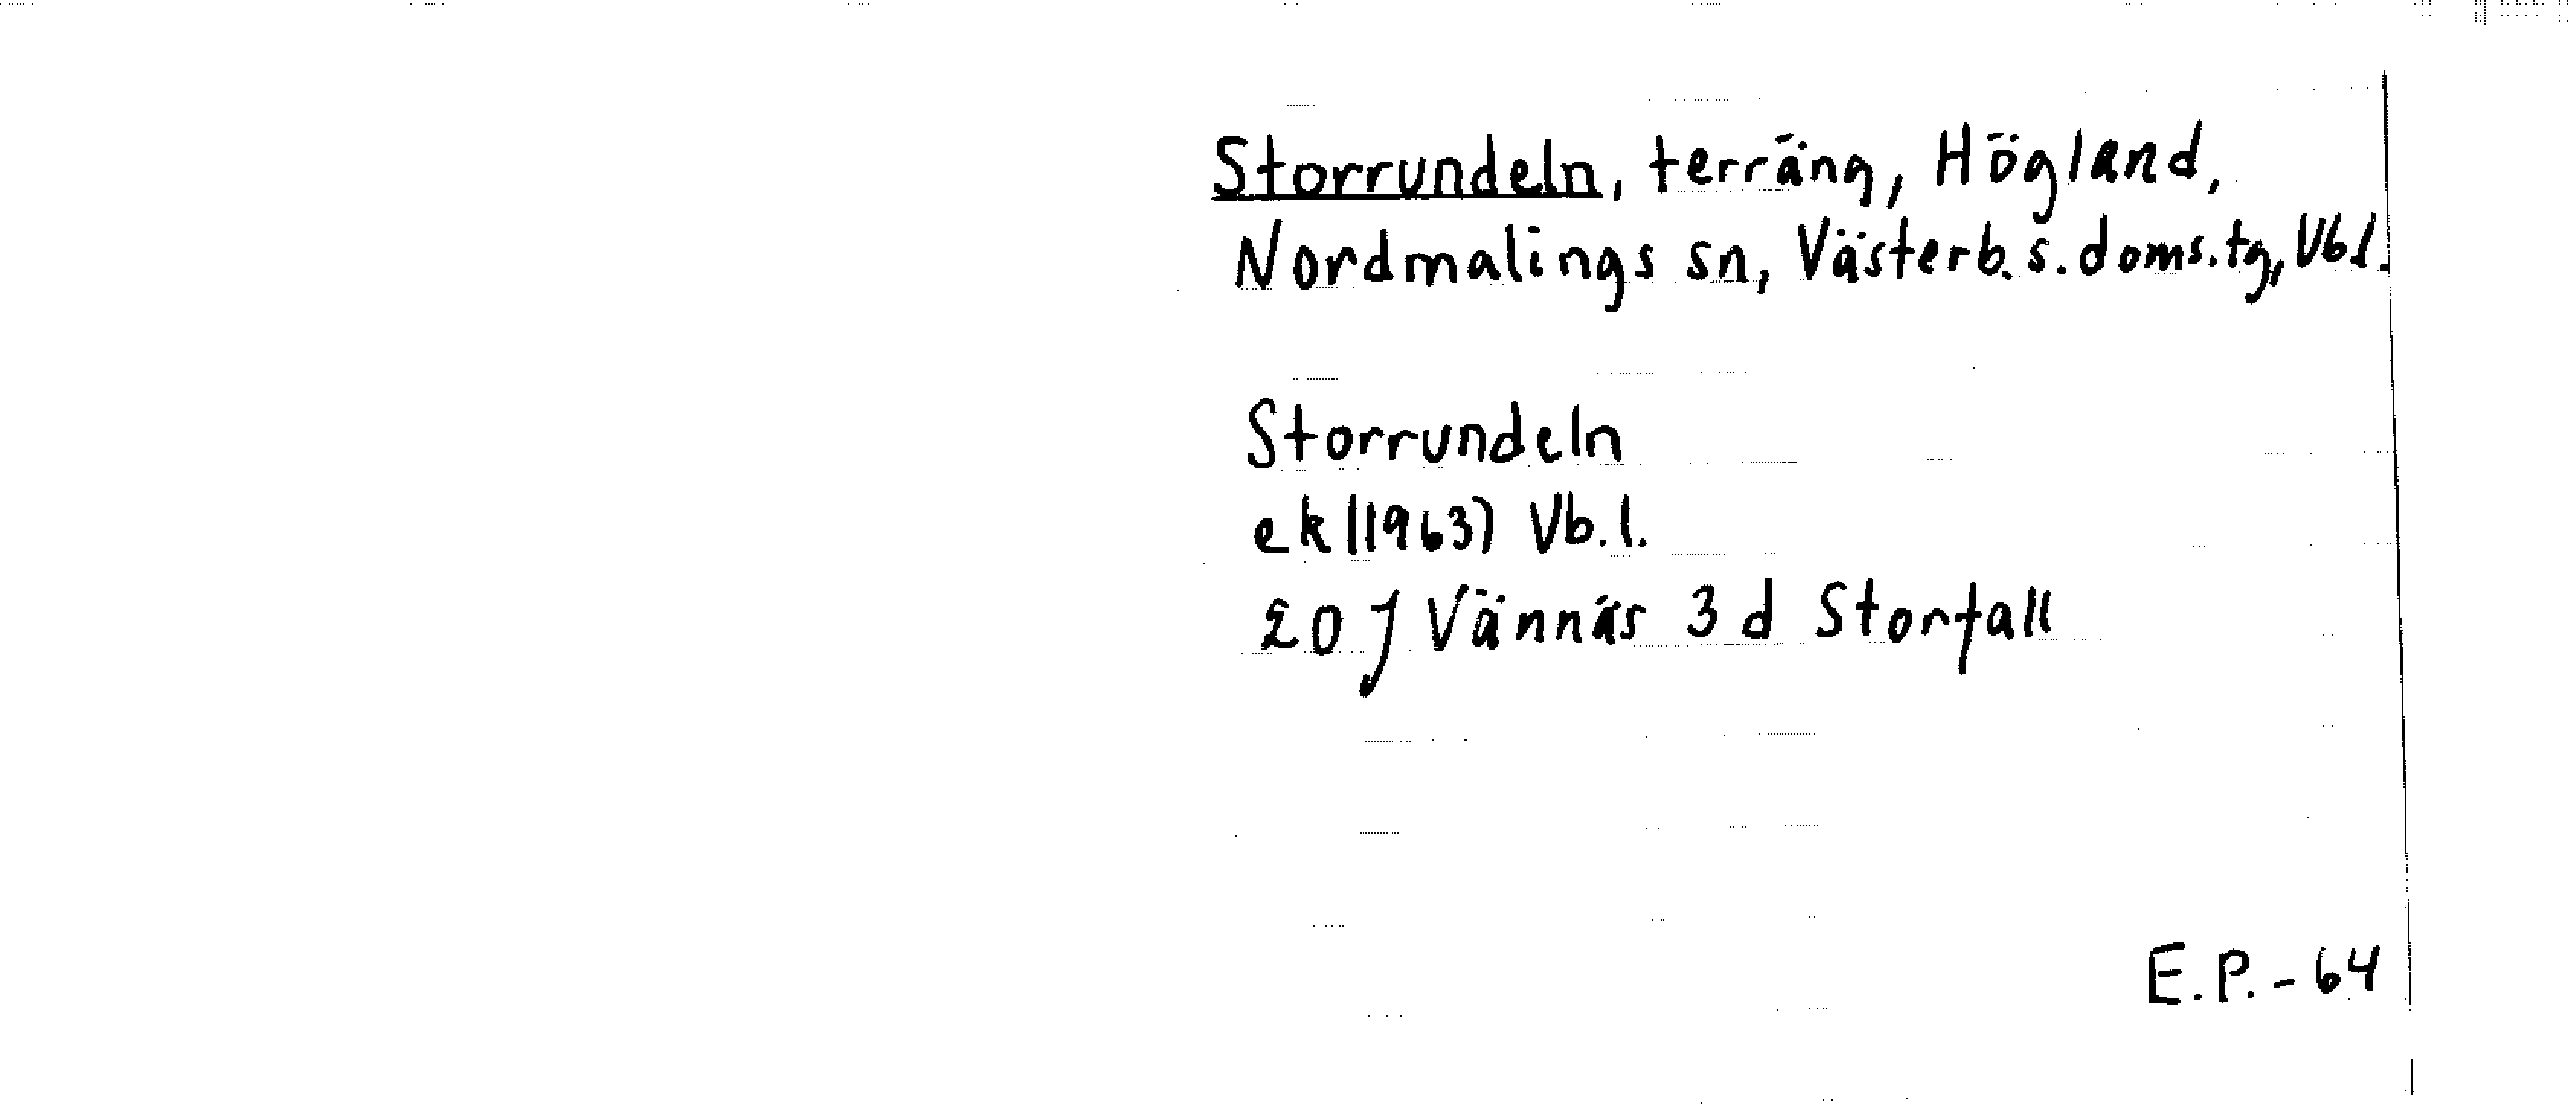 Storrundeln, terräng, Högland,
Nordmalings sn, Västerb. s. doms. tg, Vb l.
Storrundeln
ek (1963) Vb. l.
20 J Vännäs 3 d Storfall
E.P. - 64